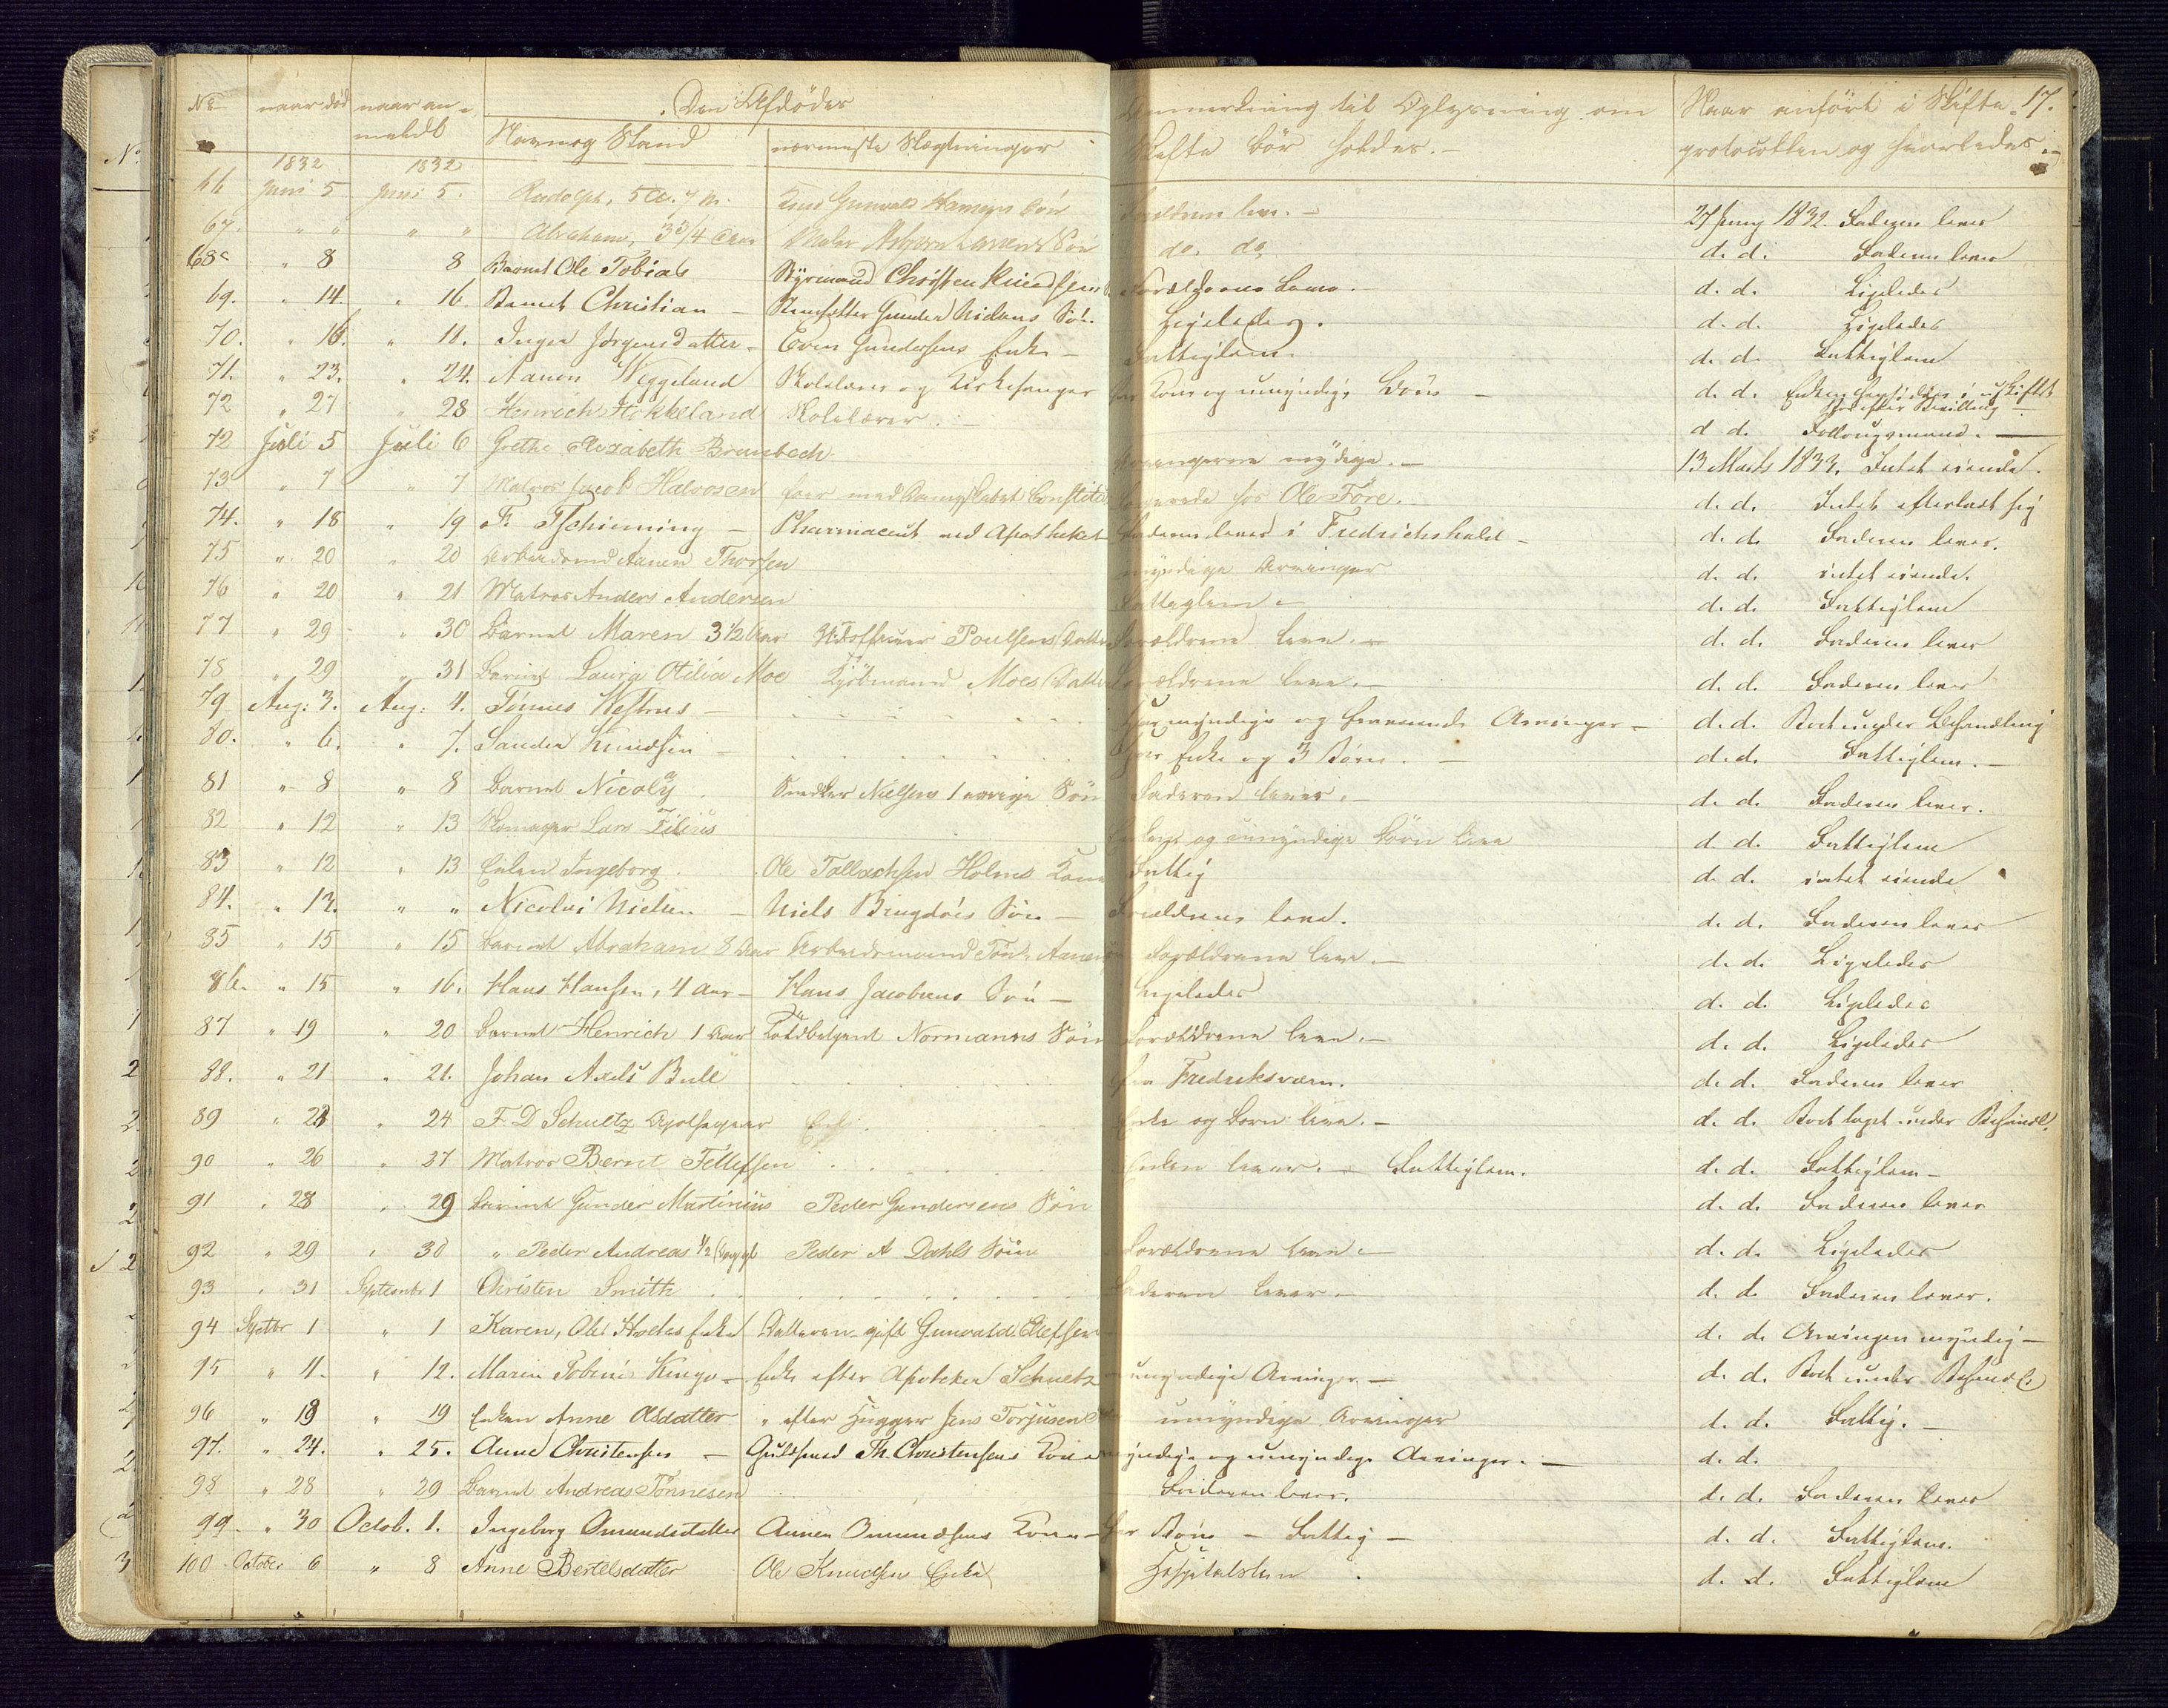 No naar död naar an- Den Afdödes Anmerkning til Oplysning om Naar anfört i Skifte 17.
meldt Navn og Stand nærmeste Slægtninger Skifte bör holdes.- protocollen og hvorledes.-
1832 1832
66 Juni 5 Juni 5. Rudolph, 5 M. Knud Gunvald Hansens Sön Forældrene leve.- 27 Juny 1832. Faderen lever
67. " " " " Abraham, 3 3/4 Aar Maler Asbiørn Larsens Sön do. do. d. d. Faderen lever
68 " 8 8 Barnet Ole Tobias Styrmand Christen Forældrene leve.- d. d. Ligeledes
69. " 14. " 16. Barnet Christian - Gunder Sön. Ligeledes. d. d. Ligeledes
70. " 16. " 18. Inger Jörgensdatter - Even Gundersens Enke - Fattiglem. d. d. Fattiglem
71. " 23. " 24. Aanen Weggeland Skolelærer og Kirkesanger har Kone og umyndige Börn - d. d. Enken hensidder i uskiftet
Boe efter Bevilling -
72 " 27 " 28 Henrich Stokkeland Skolelærer. - d d. -
72 Juli 5 Juli 6 Grethe Elezabeth Brunbech Arvingerne myndige.- 13 Marts 1833. Intet eiende.
73 " 7 " 7 Matros Jacob Halvosen foer med Dampskibet Constitut logerede hos Ole Fore. d. d. Intet efterladt sig
74. " 18 " 19 F. Tschinning - Pharmaceut ved Apotheket Faderen lever i Fredrichshald - d. d. Faderen lever.
75 " 20 " 20 Arbeidsmd Aanen Thorsen myndige Arvinger d. d. intet eiende.
76 " 20 " 21 Matros Anders Andersen Fatteglem.- d. d. Fattiglem
77 " 29 " 30 Barnet Maren 3 1/2 Aar Poulsens Datter Forældrene leve.- d. d. Faderen lever
78 " 29 " 31 Barnet Laura Otilia Moe Kjöbmand Moes Datter Forældrene leve.- d. d. Faderen lever
79 Aug: 3. Aug: 4. Tönnes Westrus - Har myndige og fraværende Arvinger - d. d. Boet under Behandling
80. " 6. " 7. Sander Knudsen - Har Enke og 3 Börn. - d. d. Fattiglem.-
81 " 8 " 8 Barnet Nicolay Snedker Nielsens 1 aarige Sön Faderen lever.- d. d. Faderen lever.
82 " 12 " 13 Lars Tilius Enken og umyndige Börn leve d. d. Fattiglem
83 " 12 " 13 Ingeborg. Ole Tallachsen Holms Kone Fattig d. d. intet eiende
84. " 13. " " Nicolai Nielsen - Niels Bringdals Sön - Forældrene leve. d. d. Faderen lever
85 " 15 " 15 Barnet Abraham 8 Aar Arbeidsmand Forældrene leve.- d. d. Ligeledes
86. " 15 " 16. Hans Hansen, 4 Aar - Hans Jacobsens Sön - Ligeledes d. d. Ligeledes
87 " 19 " 20 Barnet Henrich 1 Aar Toldbetjent Normanns Sön Forældrene leve.- d. d. Ligeledes
88. " 21 " 21. Johan Axels Bull fra Fredriksværn. d. d. Faderen lever
89 " 23 " 24 F. D Schultz Apotheqver Enke og Börn leve.- d. d. Boet taget under Behandl.
90 " 26 " 27 Matros Bernt Tellefsen Enken lever. - Fattiglem. d. d. Fattiglem -
91 " 28 " 29 Barnet Gunder Martinius Peder Gundersens Sön d. d. Faderen lever
92 " 29 " 30 " Peder Andreas 1/2 Peder A Dahls Sön Forældrene leve.- d. d. Ligeledes
93 " 31 September 1 Christen Smith Faderen lever.- d. d. Faderen lever.
94 Septbr 1 " 1 Karen, Ole Enke Datteren gift Gunvald Ellefsen d. d. Arvingen myndig -
95 " 11. " 12. Maren Tobine Kinge - Enke efter Apoteker Schultz umyndige Arvinger - d. d. Boet under Behandl.
96 " 18 " 19 Enken Anne Olsdatter " efter Hugger Jens Torjusen umyndige Arvinger d. d. Fattig. -
97. " 24. " 25. Anne Christensen - Guldsmed Th. Christensens Kone myndige og umyndige Arvinger. - d. d.
98 " 28 " 29 Barnet Andreas Tönnesen Faderen lever. d. d. Faderen lever
99 - " 30 Octob. 1. Ingeborg Omundsdatter Aanen Omundsens Kone - har Börn - Fattig - d. d. Fattiglem.
100 October 6 " 8 Anne Bertelsdatter Ole Knudsens Enke Hospitalslem d. d. Fattiglem